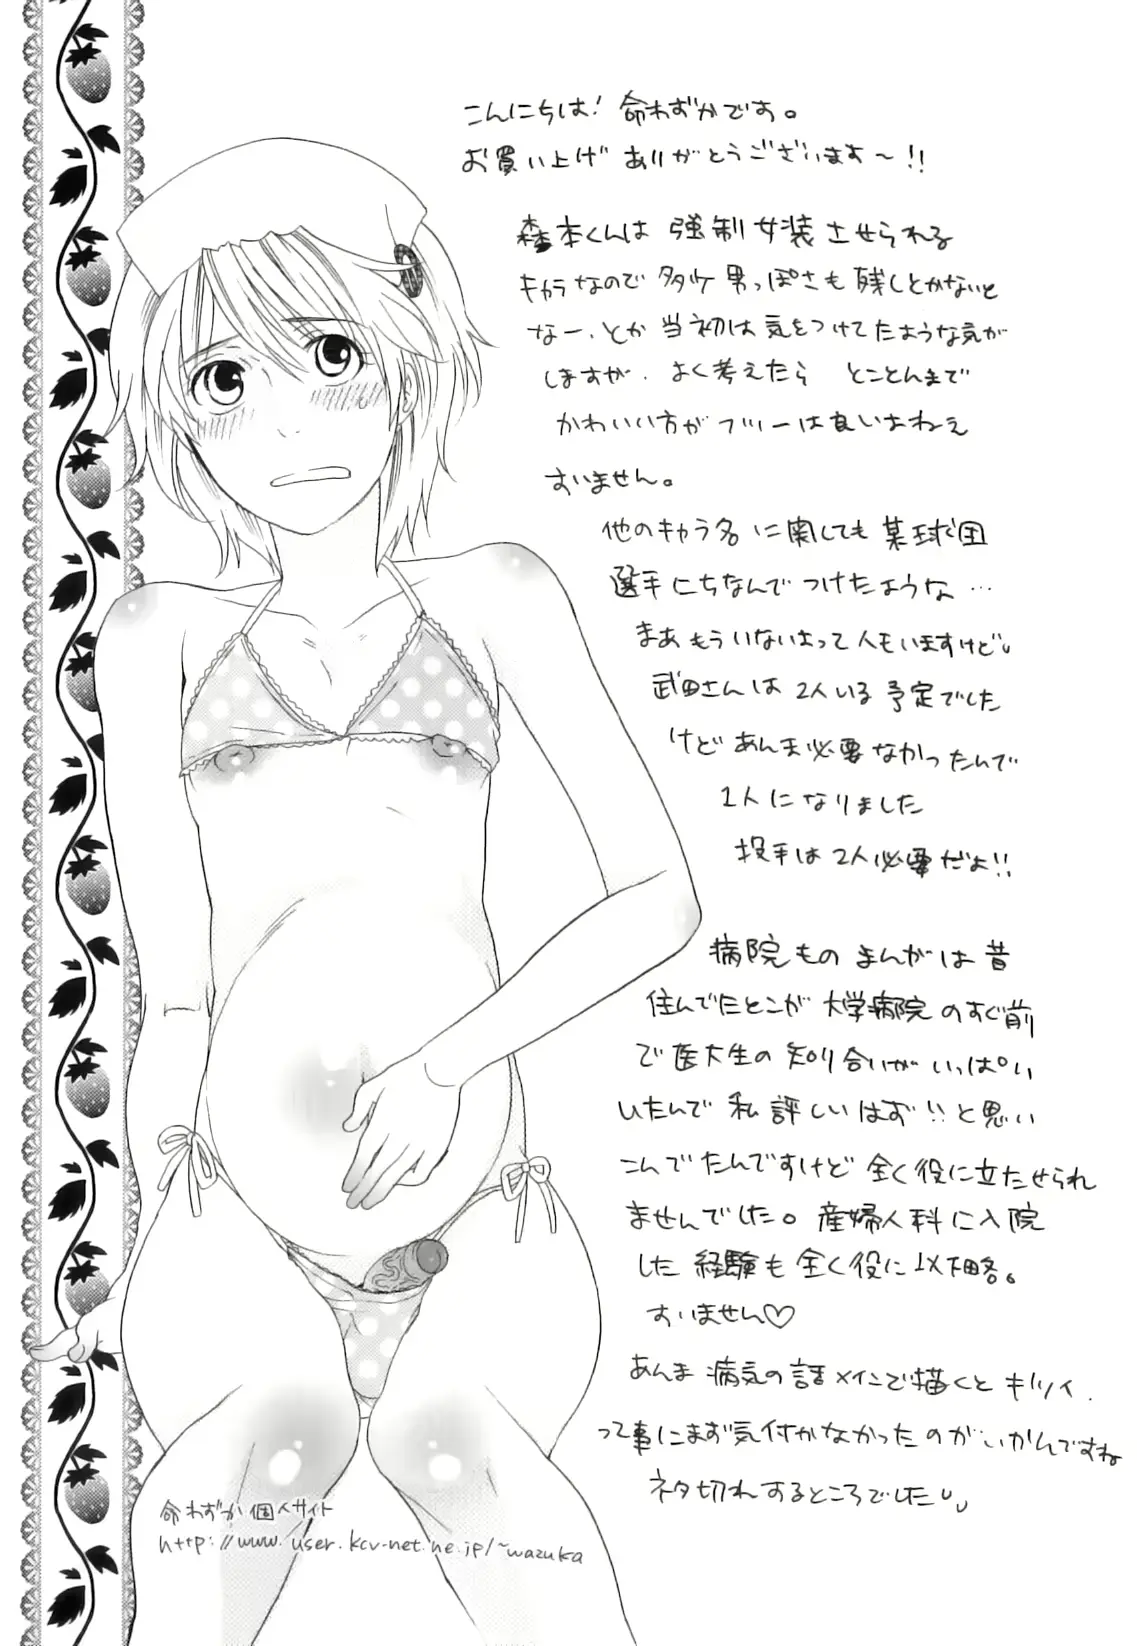 こんにちは! 命わずかです。
お買い上げ ありがとうございます〜!!
森本くんは 強制女装させられる
キャラなので 多少男っぽさも 残しとかないと
なー、とか 当初は気をつけてたような気が
しますが、よく考えたら とことんまで
かわいい方がフツーは良いよねえ
すいません。
他のキャラ名に関しても 某球団
選手にちなんで つけたような…
まあもういないよって人もいますけど
武田さんは 2人いる予定でした
けど あんま必要なかったんで
1人になりました
投手は2人必要だよ!!
病院もの まんがは昔
住んでたとこが 大学病院のすぐ前
で医大生の知り合いがいっぱい
いたんで 私 詳しいはず!!と思い
こんでたんですけど 全く役に立たせられ
ませんでした。産婦人科に入院
した経験も全く役に以下略。
すいません♡
あんま 病気の話メインで描くとキツイ、
って事にまず気付かなかったのがいかんですね
ネタ切れするところでした
命わずか個人サイト
http://www.user.kcv-net.ne.jp/~wazuka